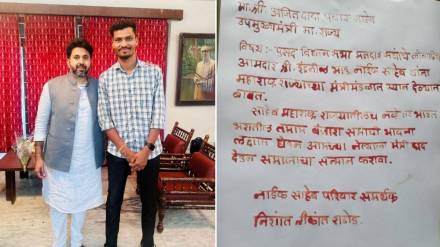 मा.श्री अजितदादा पवार साहेब
उपमुख्यमंत्री मा. राज्य
विषय:- पुसद विधान सभा मतदार संघाचे लोकप्रिय
आमदार श्री. इंद्रनील भाऊ नाईक साहेब यांना
महाराष्ट्र राज्याच्या मंत्रीमंडळात स्थान देण्यात
बाबत.
साहेब महाराष्ट्र राज्यातीलच नव्हे तर भारत
भरातील तमाम बंजारा समाजाची भावना
लक्षात घेऊन आमच्या नेत्याला मंत्री पद
देऊन समाजाचा सन्मान करावा.
नाईक साहेब परिवार समर्थक
निशांत श्रीकांत राठोड.